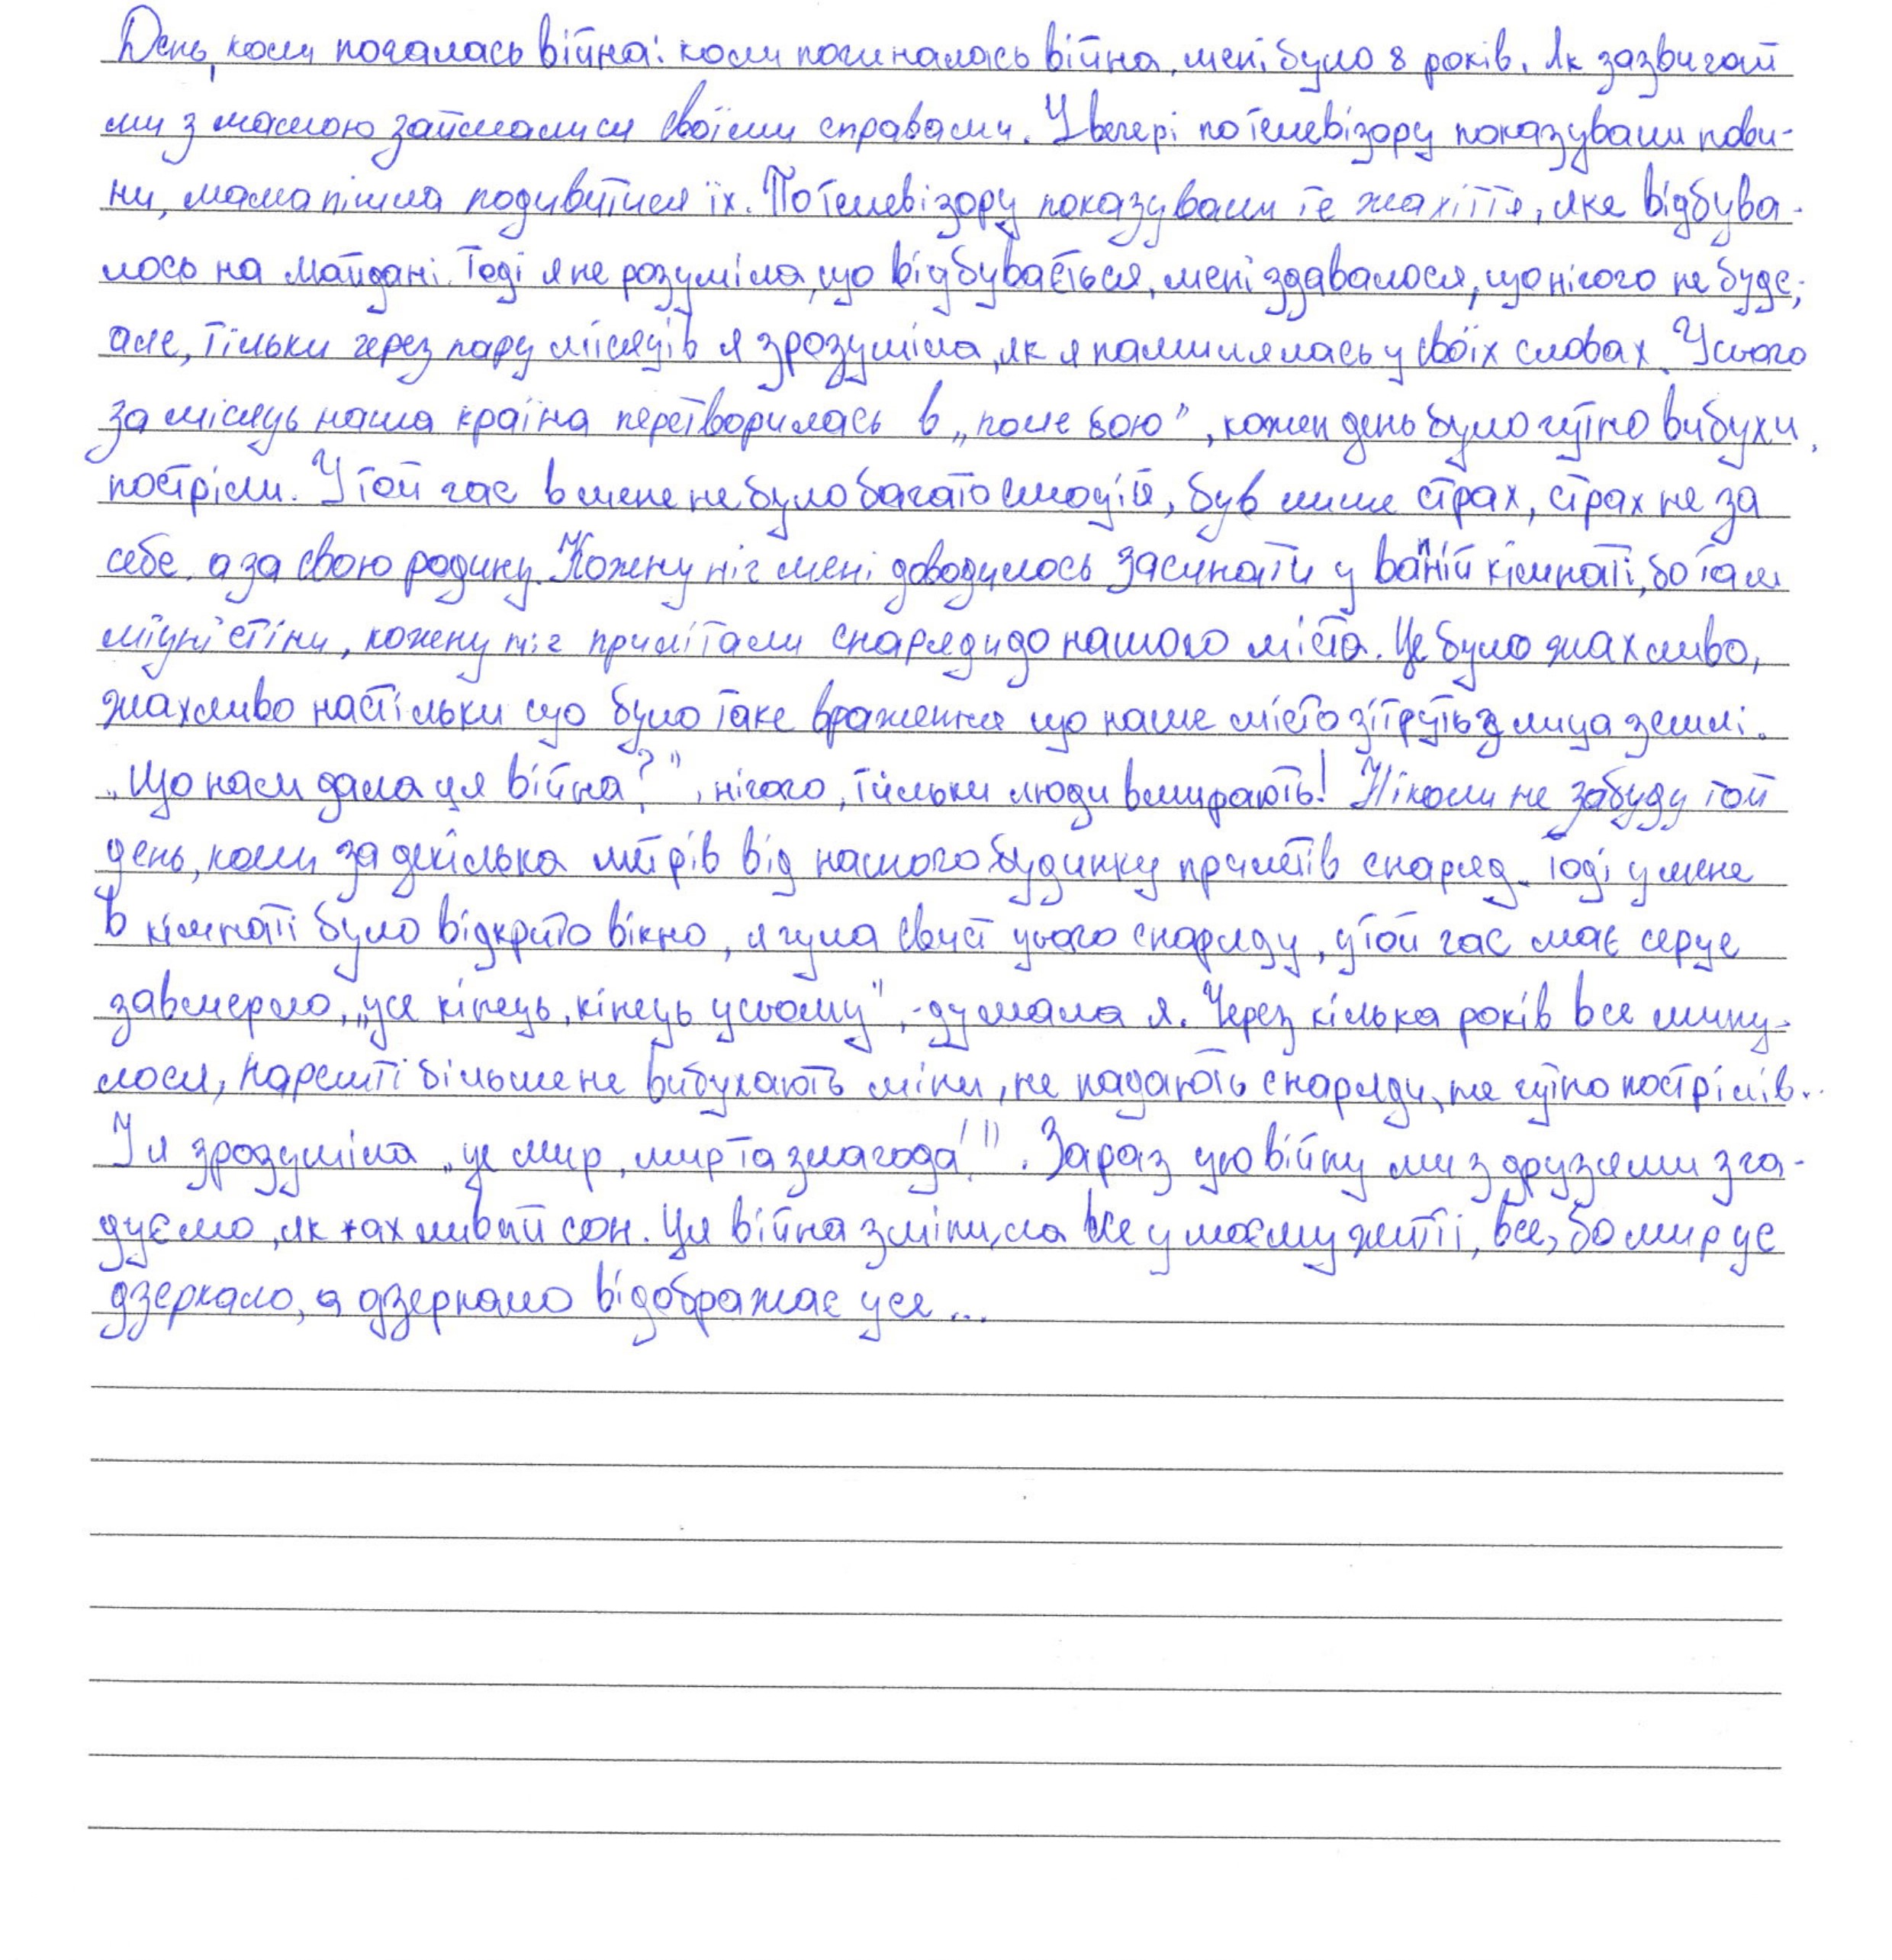 День, коли почалась війна: коли починалась війна, мені було 8 років. Як зазвичай
ми з мамою займалися своїми справами. Увечері по телевізору показували нови-
ни, мама пішла подивитися їх. По телевізору показували те жахіття, яке відбува-
лось на майдані. Тоді я не розуміла, що відбувається, мені здавалося, що нічого не буде;
але, тільки через пару місяців я зрозуміла, як я помилялась у своїх словах. Усього
за місяць наша країна перетворилась в „поле бою", кожен день було чутно вибухи,
постріли. У той час в мене не було багато емоцій, був лише страх, страх не за
себе, а за свою родину. Кожну ніч мені доводилось засинати у ванній кімнаті, бо там
міцні стіни, кожену ніч прилітали снаряди до нашого міста. Це було жахливо,
жахливо настільки що було таке враження що наше місто зітруть з лиця землі.
„Що нам дала ця війна?", нічого, тільки люди вмирають! Ніколи не забуду той
день, коли за декілька метрів від нашого будинку прилетів снаряд. Тоді у мене
в кімнаті було відкрито вікно, я чула свист цього снаряду, у той час моє серце
завмерло, „усе кінець, кінець усьому", - думала я. Через кілька років все мину-
лося, нарешті більше не вибухають міни, не падають снаряди, не чутно пострілів..
І я зрозуміла „це мир, мир та злагода!". Зараз цю війну ми з друзями зга-
дуємо, як жахливий сон. Ця війна змінила все у моєму житті, все, бо мир це
дзеркало, а дзеркало відображає усе...